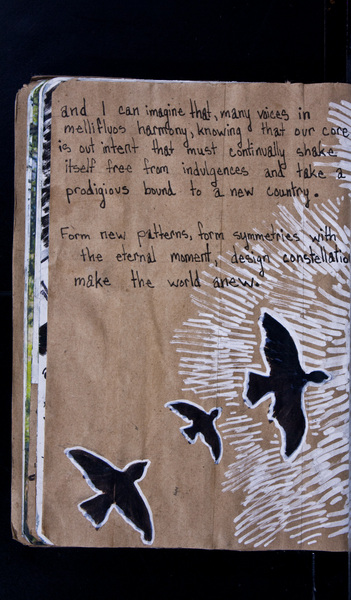 and I can imagine that, many voices in
mellifluos harmony, knowing that our core
is out intent that must continually shake
itself free from indulgences and take a
prodigious bound to a new country.
Form new patterns, form symmetries with
the eternal moment, design constellatio
make the world anew.